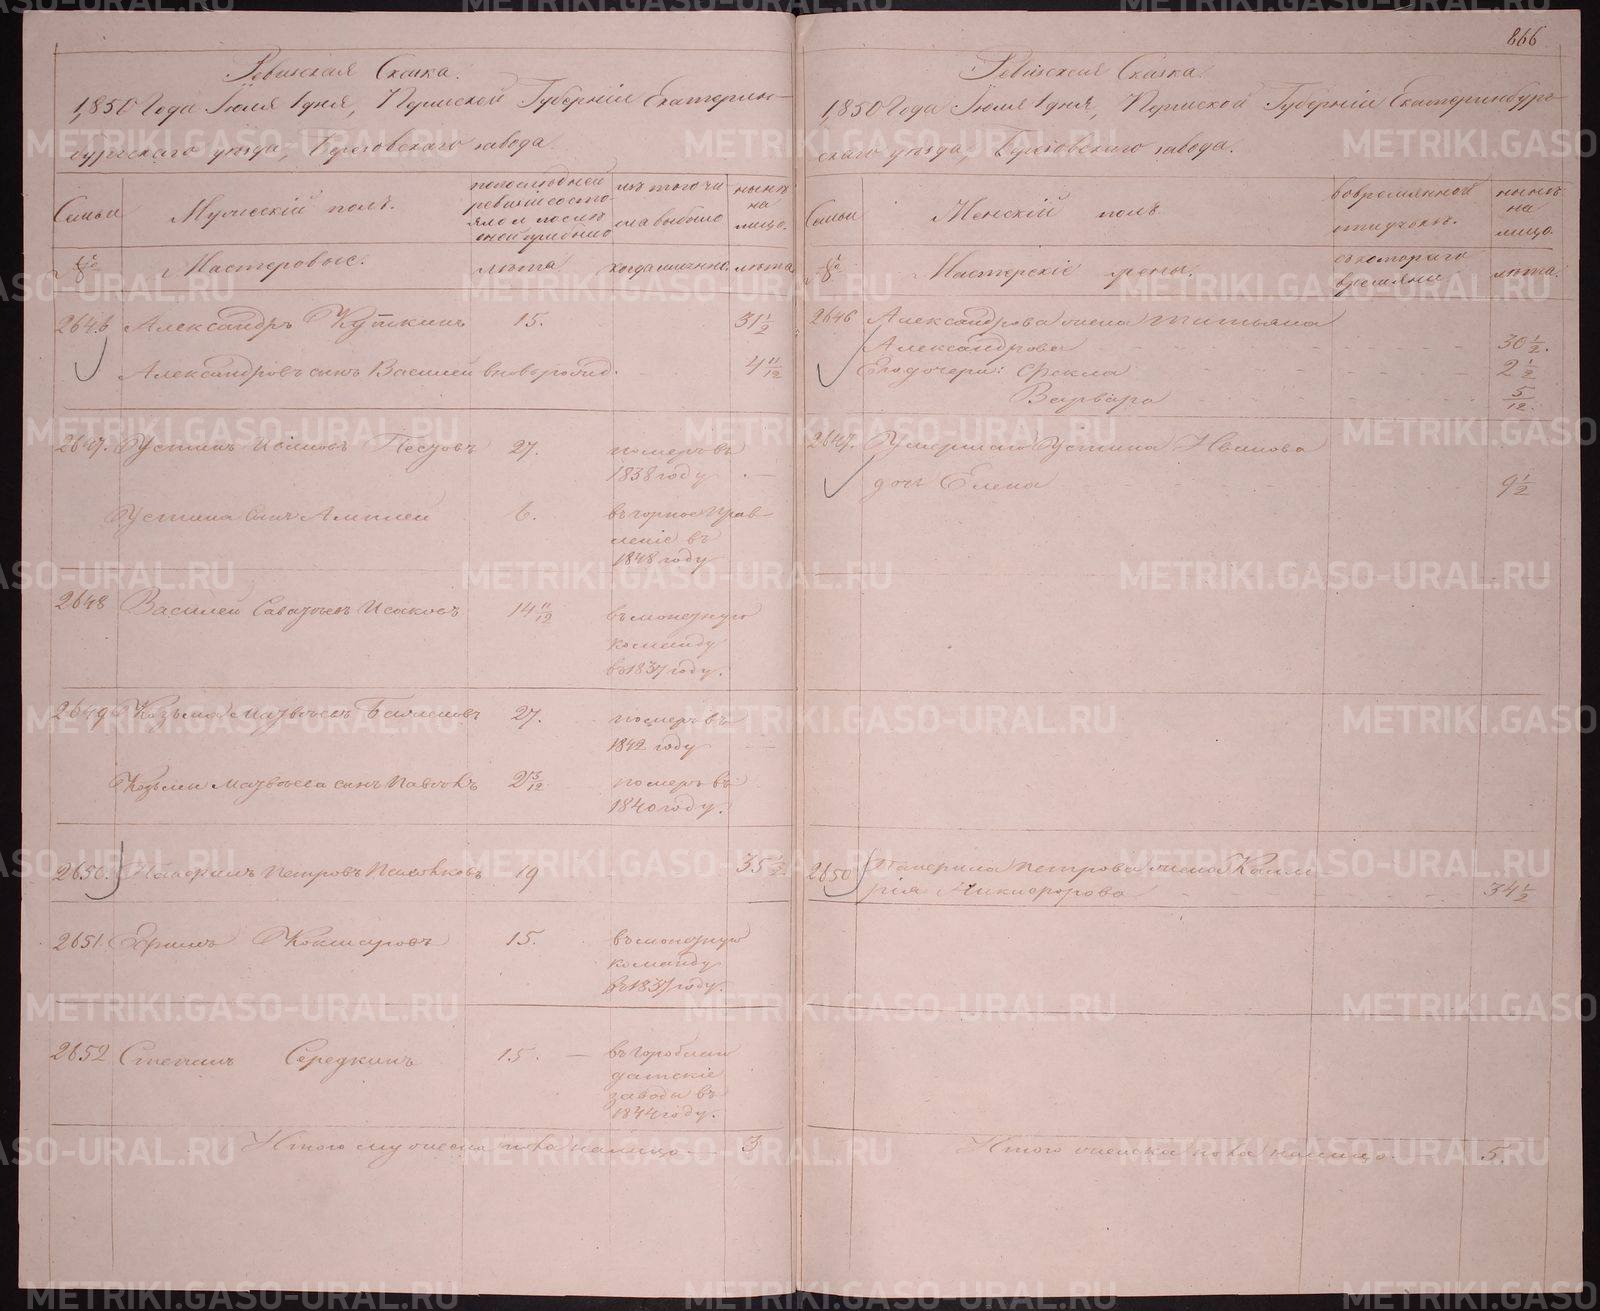 866
Ревизская Сказка.
1850 Года Июля 1 дня, Пермской Губерніи Екатерин-
бургскаго уѣзда, Березовскаго завода.
Семьи
Мужескій полъ.
по последней
ревизіи состо
яло и после
оной прибыло
изъ того чи
сла выбыло
нынѣ
на
лицо.
№
Мастеровые.
лѣта
когда именно.
лѣта
2646
Александръ Куткинъ
15.
31 1/2
Александровъ сынъ Василей вновьрожд.
4 11/12
2647.
Устинъ Ивановъ Пестовъ
27.
померъ въ
1838 году
Устина сынъ
6.
въ горное Прав-
леніе въ
1848 году
2648
Василей Савватеевъ Исаковъ
14 11/12
въ монетную
команду
въ 1837 году.
2649
Козьма Матвеевъ
27.
померъ въ
1842 году
Козьмы Матвеева сынъ
2 3/12
померъ въ
1840 году.
2650.
Панфилъ Петровъ
19
35 1/2
2651.
15.
въ монетную
команду
въ 1837 году.
2652
Степанъ Середкинъ
15.
въ Гороблаго
датскіе
заводы въ
1844 году.
Итого мужеска пола налицо
3
Ревизская Сказка.
1850 Года Июля 1 дня, Пермской Губерніи Екатеринбург-
скаго уѣзда, Березовскаго завода.
Семьи
Женскій полъ
во временной
отлучкѣ.
нынѣ
на
лицо.
№
Мастерскіе жены.
съ котораго
времяни
лѣта.
2646
Александрова жена Татьяна
Александрова
30 1/2.
Его дочери: Фекла
2 1/2
Варвара
5/12.
2647.
Умершаго Устина Иванова
дочь Елена
9 1/2
2650
Панфила Петрова жена
Никифорова
34 1/2
Итого женска пола налицо
5.
METRIKI.GASO-URAL.RU